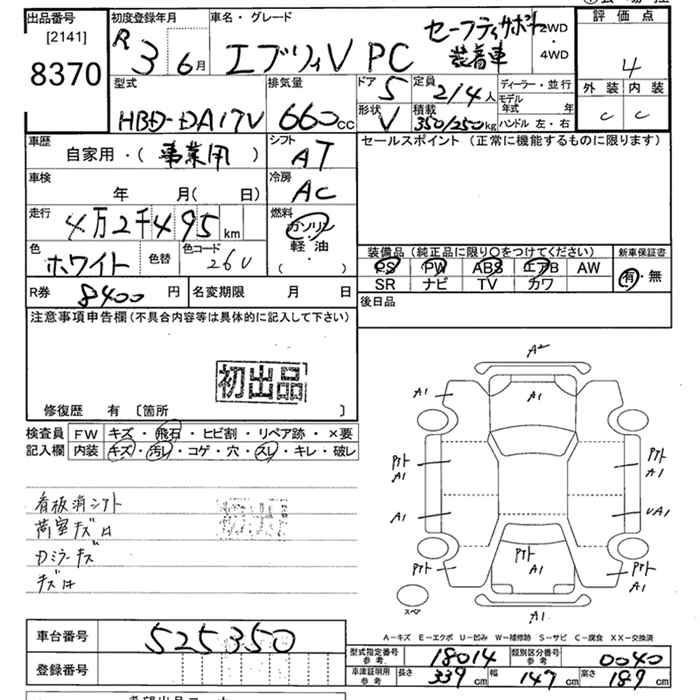 出品番号
[2141]
8370
初度登録年月
R 3 6月
車名・グレード
エブリィV PC
セーフティサポート
装着車
2WD
・
4WD
評価点
4
外装 内装
C C
型式
HBD-DA17V
排気量
660cc
ドア 5
定員 2/4人
形状 V
積載 350/250kg
ディーラー・並行
モデル年式 年
ハンドル 左・右
車歴
自家用・(事業用)
シフト
AT
セールスポイント (正常に機能するものに限ります)
車検
年 月( 日)
冷房
AC
走行
4万2千495km
燃料
ガソリン
・
軽油
( )
色
ホワイト
色替
色コード
26U
装備品 (純正品に限り○をつけてください)
新車保証書
PS PW ABS エアB AW
SR ナビ TV カワ
有・無
R券 8400円
名変期限 月 日
後日品
注意事項申告欄(不具合内容等は具体的に記入して下さい)
初出品
修復歴 有 〔箇所 〕
検査員記入欄
FW キズ・飛石・ヒビ割・リペア跡・×要
内装 キズ・汚レ・コゲ・穴・スレ・キレ・破レ
看板消シアト
荷室キズ凹
Dミラーキズ
キズ凹
A2
A1
A1
A1
Pアト
A1
Pアト
A1
A1
UA1
Pアト
A1
Pアト
Pアト
A1
A1
スペア
A-キズ E-エクボ U-凹み W-補修跡 S-サビ C-腐食 XX-交換済
車台番号
525350
登録番号
型式指定番号
参考
18014
類別区分番号
参考
0040
車庫証明用
参考
長さ 339cm
幅 147cm
高さ 189cm